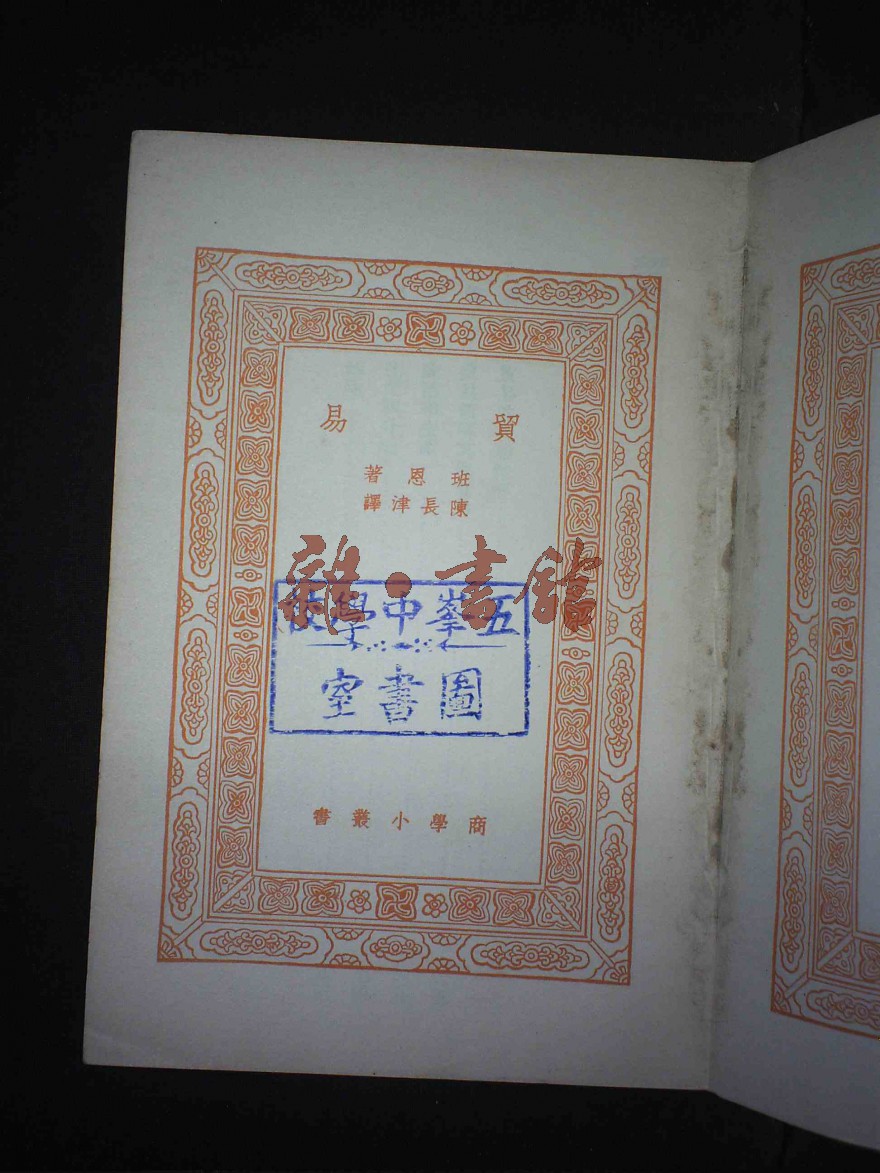 貿易
班恩著
陳長津譯
雜·書館
五峯中學校
圖書室
商學小叢書